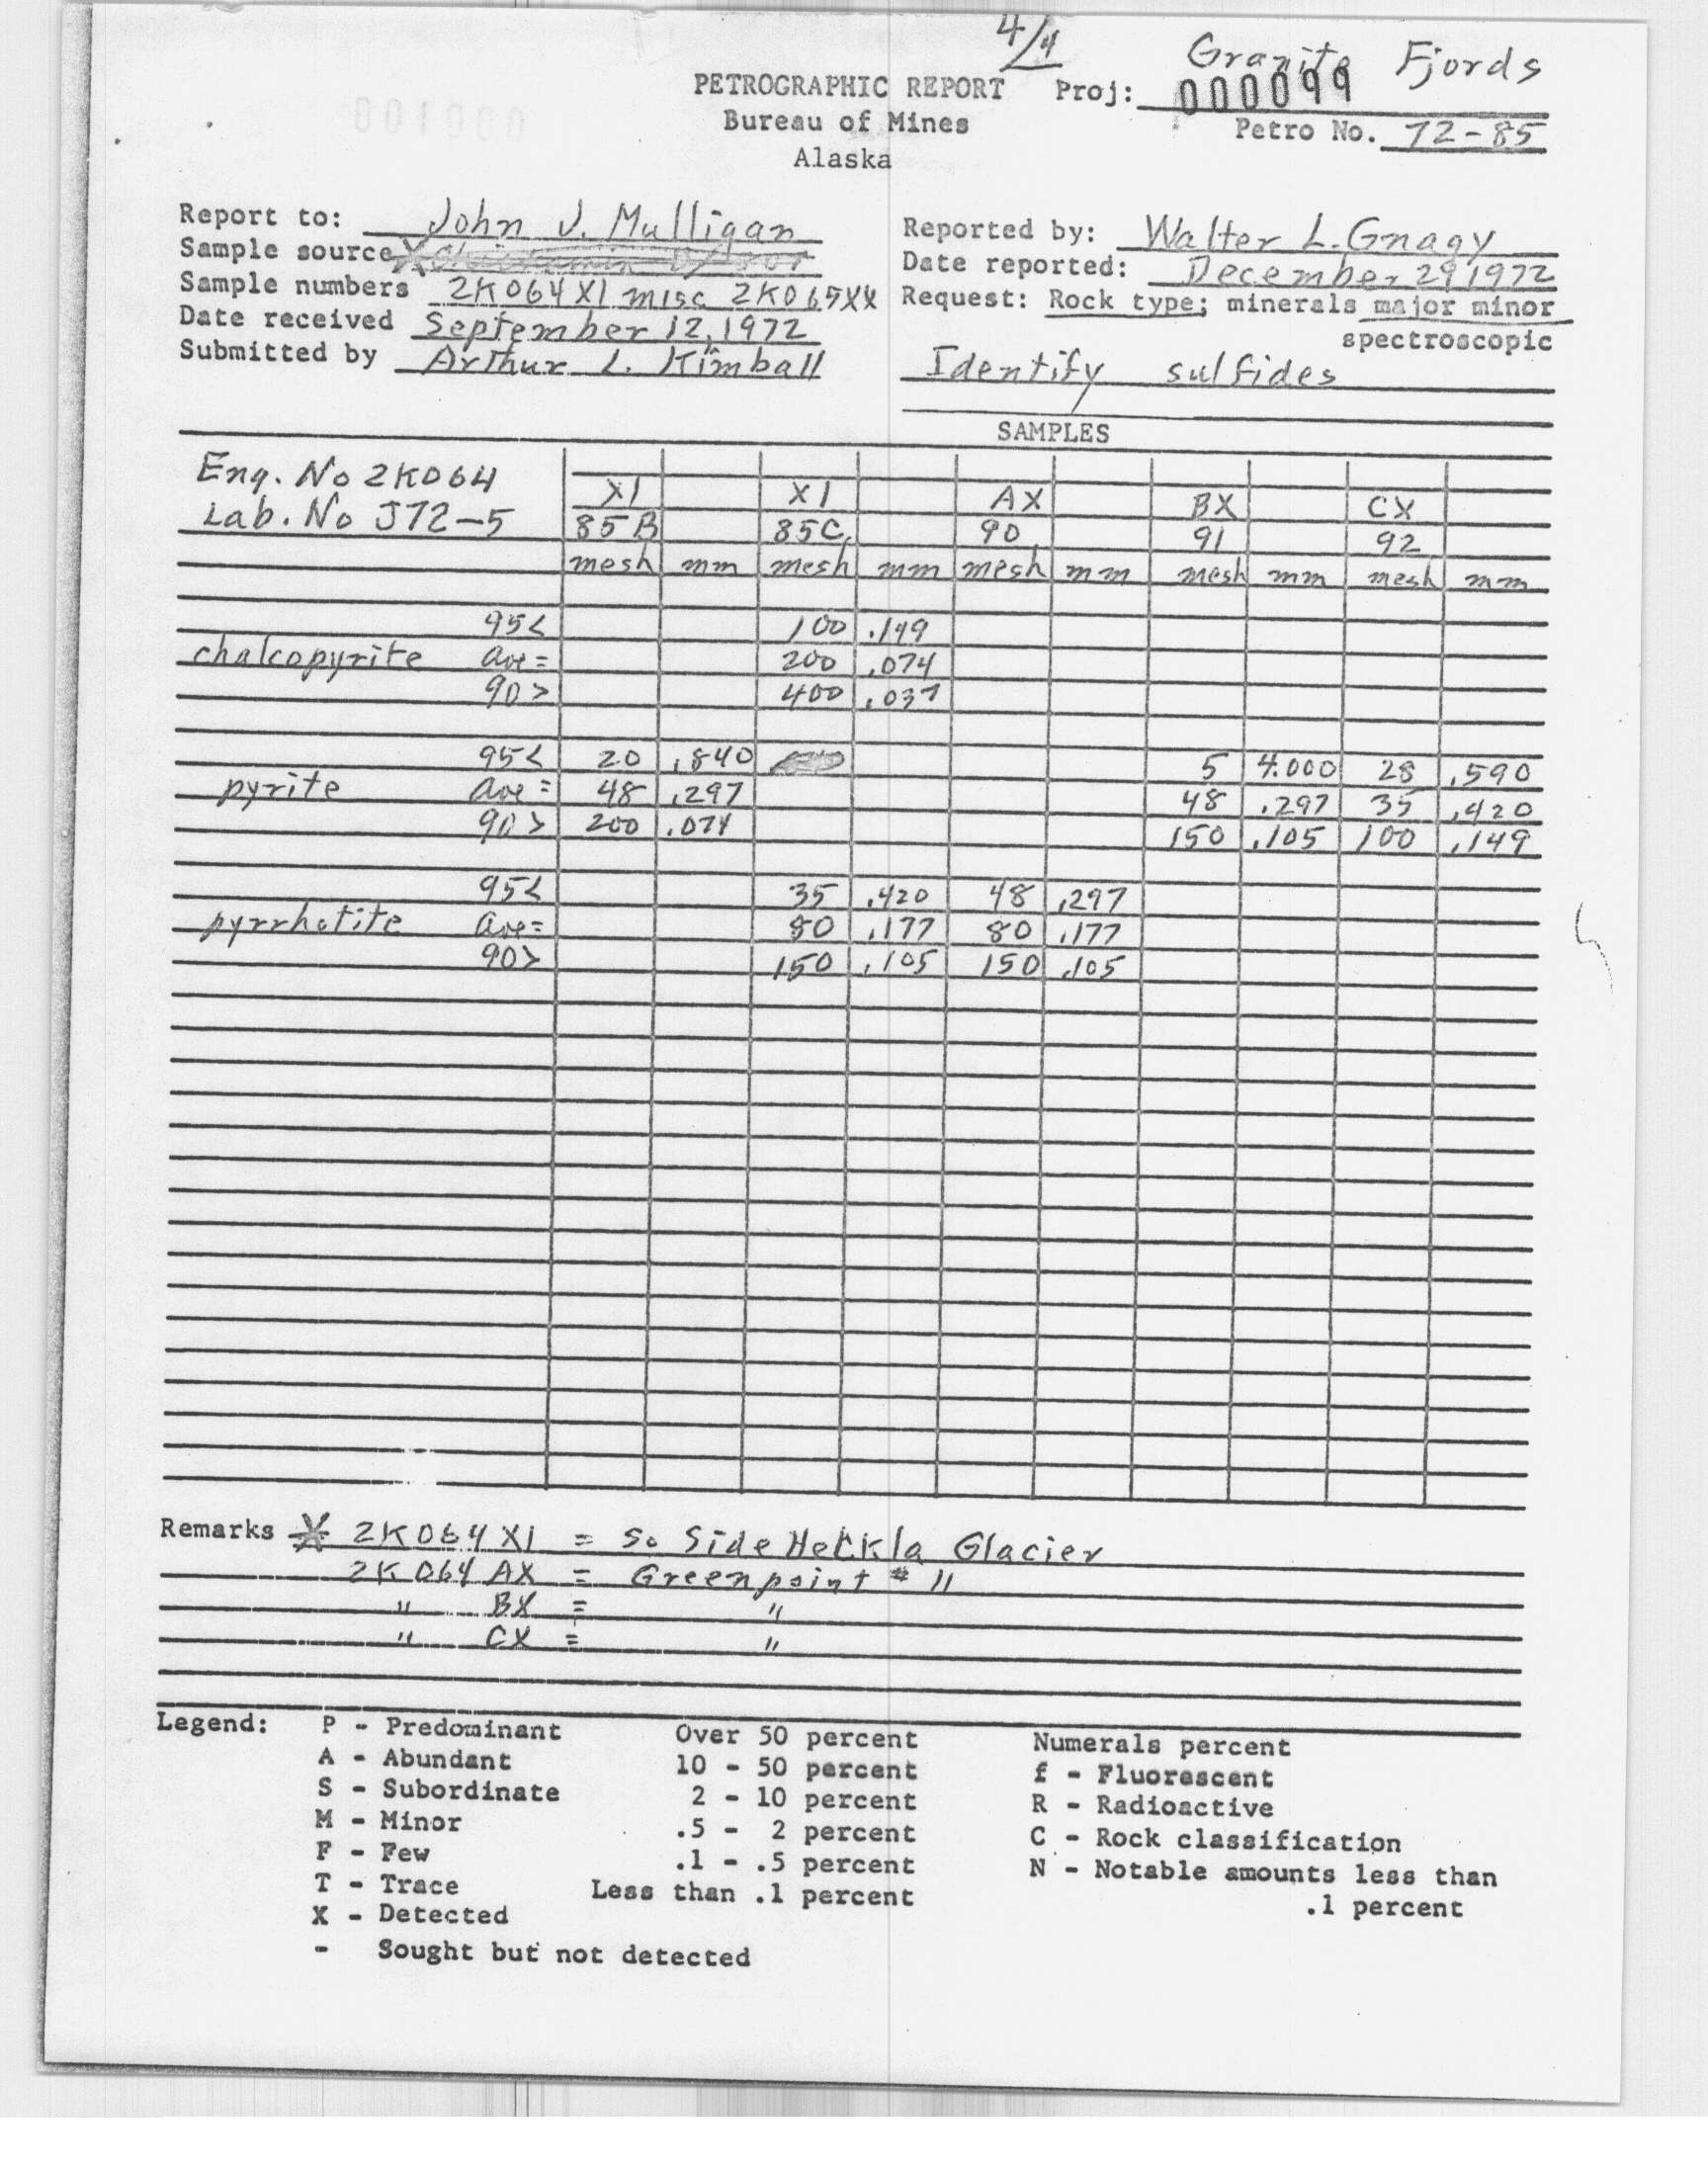 4/4 Granite Fjords
PETROGRAPHIC REPORT Proj: 000099
Bureau of Mines Petro No. 72-85
Alaska
Report to: John J. Mulligan Reported by: Walter L. Gnagy
Sample source X Date reported: December 29 1972
Sample numbers 2K064X1 misc 2K065XX Request: Rock type; minerals major minor
Date received September 12, 1972 spectroscopic
Submitted by Arthur L. Kimball Identify sulfides
SAMPLES
Eng. No 2K064 X1 X1 AX BX CX
Lab. No J72-5 85B 85C 90 91 92
mesh mm mesh mm mesh mm mesh mm mesh mm
95< 100 .149
chalcopyrite ave= 200 .074
90> 400 .037
95< 20 .840 5 4.000 28 .590
pyrite ave= 48 .297 48 .297 35 .420
90> 200 .074 150 .105 100 .149
95< 35 .420 48 .297
pyrrhotite ave= 80 .177 80 .177
90> 150 .105 150 .105
Remarks * 2K064X1 = So Side Heckla Glacier
2K064 AX = Greenpoint # 11
" BX = "
" CX = "
Legend: P - Predominant Over 50 percent Numerals percent
A - Abundant 10 - 50 percent f - Fluorescent
S - Subordinate 2 - 10 percent R - Radioactive
M - Minor .5 - 2 percent C - Rock classification
F - Few .1 - .5 percent N - Notable amounts less than
T - Trace Less than .1 percent .1 percent
X - Detected
- Sought but not detected